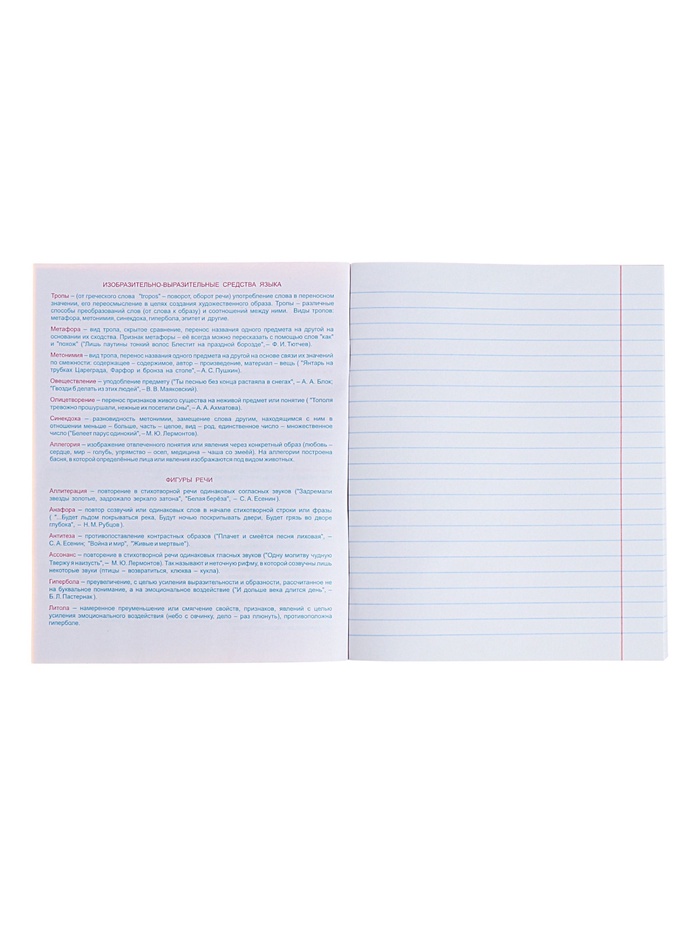 ИЗОБРАЗИТЕЛЬНО-ВЫРАЗИТЕЛЬНЫЕ СРЕДСТВА ЯЗЫКА
Тропы – (от греческого слова "tropos" – поворот, оборот речи) употребление слова в переносном
значении, его переосмысление в целях создания художественного образа. Тропы – различные
способы преобразований слов (от слова к образу) и соотношений между ними. Виды тропов:
метафора, метонимия, синекдоха, гипербола, эпитет и другие.
Метафора – вид тропа, скрытое сравнение, перенос названия одного предмета на другой на
основании их сходства. Признак метафоры – её всегда можно пересказать с помощью слов "как"
и "похож" ("Лишь паутины тонкий волос Блестит на праздной борозде", – Ф. И. Тютчев).
Метонимия – вид тропа, перенос названия одного предмета на другой на основе связи их значений
по смежности: содержащее – содержимое, автор – произведение, материал – вещь ( "Янтарь на
трубках Цареграда, Фарфор и бронза на столе", – А. С. Пушкин).
Овеществление – уподобление предмету ("Ты песнью без конца растаяла в снегах", – А. А. Блок;
"Гвозди б делать из этих людей", – В. В. Маяковский).
Олицетворение – перенос признаков живого существа на неживой предмет или понятие ( "Тополя
тревожно прошуршали, нежные их посетили сны", – А. А. Ахматова).
Синекдоха – разновидность метонимии, замещение слова другим, находящимся с ним в
отношении меньше – больше, часть – целое, вид – род, единственное число – множественное
число ("Белеет парус одинокий", – М. Ю. Лермонтов).
Аллегория – изображение отвлеченного понятия или явления через конкретный образ (любовь –
сердце, мир – голубь, упрямство – осел, медицина – чаша со змеёй). На аллегории построена
басня, в которой определённые лица или явления изображаются под видом животных.
ФИГУРЫ РЕЧИ
Аллитерация – повторение в стихотворной речи одинаковых согласных звуков ("Задремали
звезды золотые, задрожало зеркало затона", "Белая берёза", – С. А. Есенин ).
Анафора – повтор созвучий или одинаковых слов в начале стихотворной строки или фразы
( ".. Будет льдом покрываться река, Будут ночью поскрипывать двери, Будет грязь во дворе
глубока", – Н. М. Рубцов ).
Антитеза – противопоставление контрастных образов ("Плачет и смеётся песня лиховая", –
С. А. Есенин; "Война и мир", "Живые и мертвые").
Ассонанс – повторение в стихотворной речи одинаковых гласных звуков ("Одну молитву чудную
Твержу я наизусть", – М. Ю. Лермонтов). Так называют и неточную рифму, в которой созвучны лишь
некоторые звуки (птицы – возвратиться, клюква – кукла).
Гипербола – преувеличение, с целью усиления выразительности и образности, рассчитанное не
на буквальное понимание, а на эмоциональное воздействие ("И дольше века длится день", –
Б. Л. Пастернак ).
Литота – намеренное преуменьшение или смягчение свойств, признаков, явлений с целью
усиления эмоционального воздействия (небо с овчинку, дело – раз плюнуть), противоположна
гиперболе.